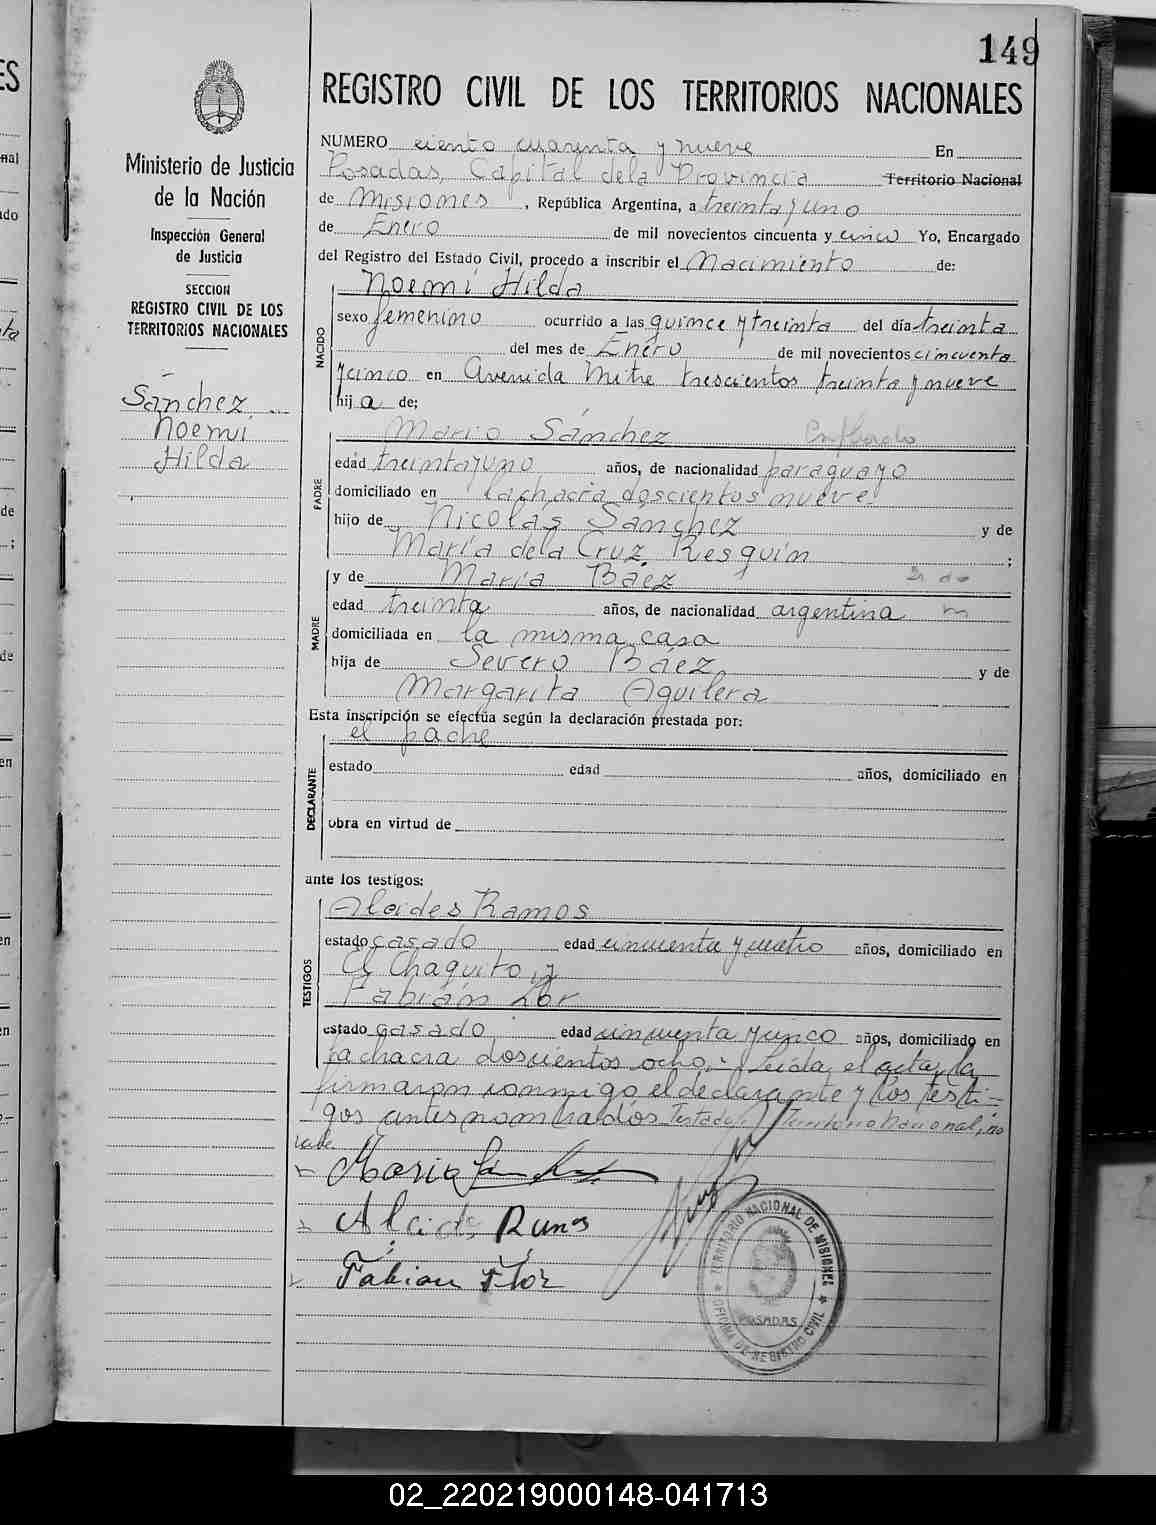 149
REGISTRO CIVIL DE LOS TERRITORIOS NACIONALES
Ministerio de Justicia
de la Nación
Inspección General
de Justicia
SECCION
REGISTRO CIVIL DE LOS
TERRITORIOS NACIONALES
Sánchez
Noemí
Hilda
NUMERO ciento cuarenta y nueve En
Posadas, Capital dela Provincia Territorio Nacional
de Misiones, República Argentina, a treinta y uno
de Enero de mil novecientos cincuenta y cinco Yo, Encargado
del Registro del Estado Civil, procedo a inscribir el Nacimiento de:
NACIDO
Noemí Hilda
sexo femenino ocurrido a las quince y treinta del día treinta
del mes de Enero de mil novecientos cincuenta
y cinco en Avenida Mitre trescientos treinta y nueve
hija de;
PADRE
Mario Sánchez
edad treinta y uno años, de nacionalidad paraguayo
domiciliado en la chacra doscientos nueve
hijo de Nicolás Sánchez y de
María dela Cruz Riesquín ;
MADRE
y de María Báez
edad treinta años, de nacionalidad argentina
domiciliada en la misma casa
hija de Severo Báez y de
Margarita Aguilera
Esta inscripción se efectúa según la declaración prestada por:
DECLARANTE
el padre
estado edad años, domiciliado en
obra en virtud de
ante los testigos:
TESTIGOS
Alcides Ramos
estado casado edad cincuenta y cuatro años, domiciliado en
El Chaquito, y
Fabián Flor
estado casado edad cincuenta y cinco años, domiciliado en
la chacra doscientos ocho.- Leída el acta, la
firmaron conmigo el declarante y los testi-
gos antes nombrados. Testado: Territorio Nacional, no
vale.
Mario
Alcides Ramos
Fabian Flor
TERRITORIO NACIONAL DE MISIONES
POSADAS
OFICINA DE REGISTRO CIVIL
02_220219000148-041713